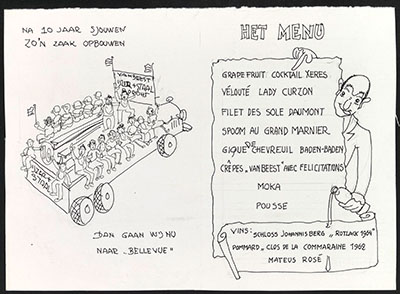 NA 10 JAAR SJOUWEN
ZO'N ZAAK OPBOUWEN
VAN BEEST
DAN GAAN WIJ NU
NAAR „BELLEVUE"
HET MENU
GRAPE FRUIT COCKTAIL XERES
VÉLOUTÉ LADY CURZON
FILET DES SOLE DAUMONT
SPOOM AU GRAND MARNIER
GIQUE DE CHEVREUIL BADEN-BADEN
CRÊPES „VAN BEEST" AVEC FELICITATIONS
MOKA
POUSSE
VINS: SCHLOSS JOHANNISBERG „ROTLACK 1964"
POMMARD „CLOS DE LA COMMARAINE 1962
MATEUS ROSÉ